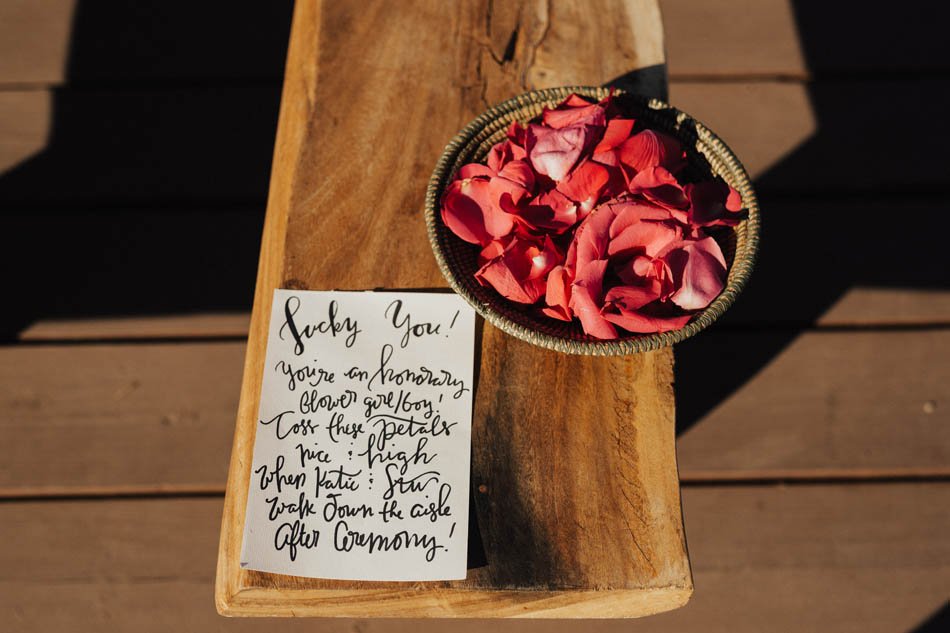 Lucky You!
You're an honorary
flower girl/boy!
Toss these petals
nice & high
when Katie & Stu
walk down the aisle
After Ceremony!